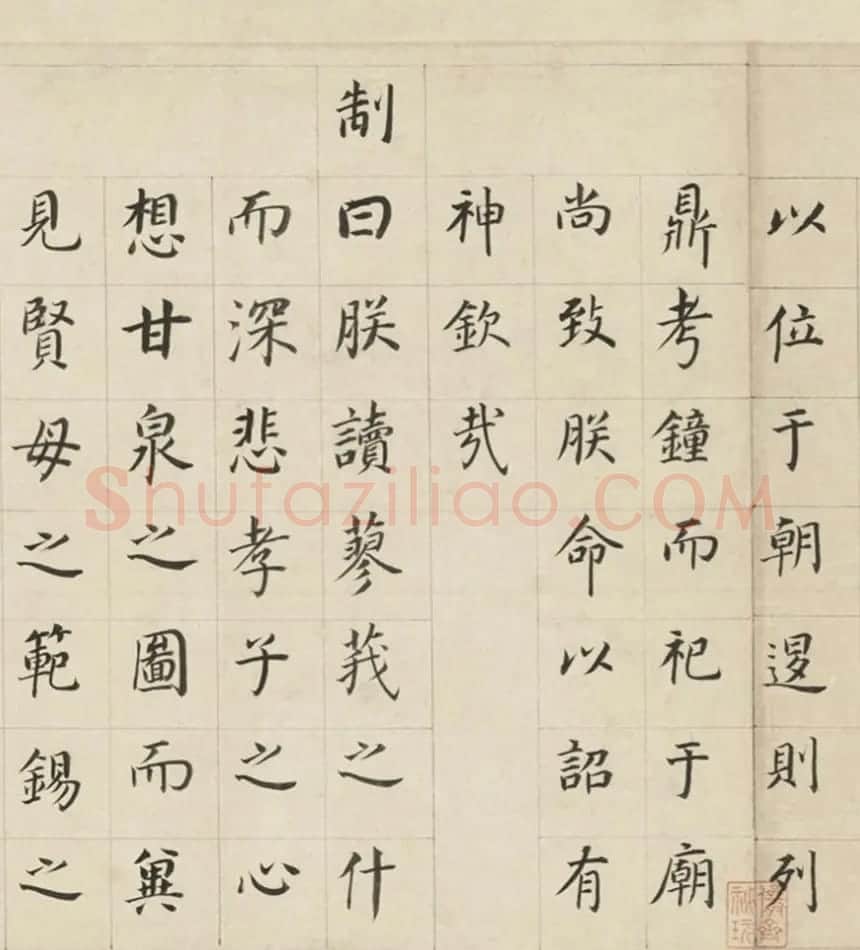 以位于朝退則列
鼎考鐘而祀于廟
尚致朕命以詔有
神欽哉
制曰朕讀蓼莪之什
而深悲孝子之心
想甘泉之圖而冀
見賢母之範錫之
Shufaziliao.COM